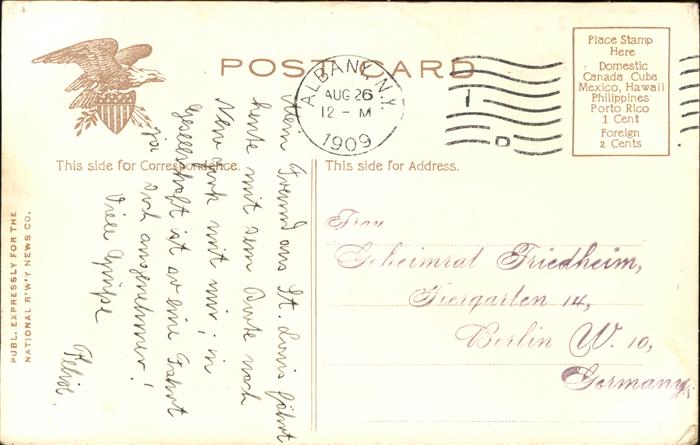 POST CARD
ALBANY, N.Y.
AUG 26
12 - M
1909
1
D
Place Stamp
Here
Domestic
Canada Cuba
Mexico, Hawaii
Philippines
Porto Rico
1 Cent
Foreign
2 Cents
This side for Correspondence.
This side for Address.
PUBL. EXPRESSLY FOR THE
NATIONAL R'WY NEWS CO.
Mein Freund aus St. Louis fährt
heute mit dem Boote nach
New York mit mir; in
Gesellschaft ist so eine Fahrt
ja
doch angenehmer!
Viele Grüße
Felix.
Frau
Geheimrat Friedheim,
Tiergarten 14,
Berlin W. 10,
Germany.